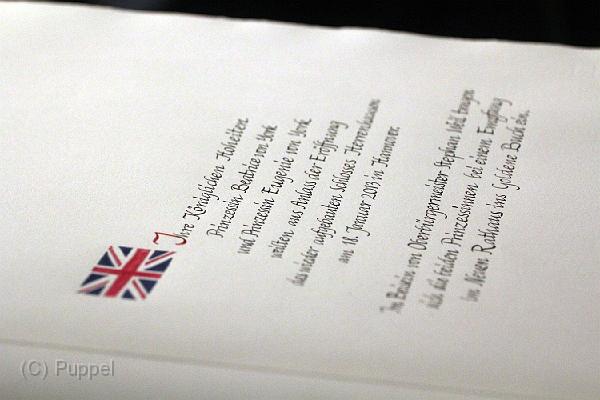 Ihre Königlichen Hoheiten
Prinzessin Beatrice von York
und Prinzessin Eugenie von York
weilten aus Anlass der Eröffnung
des wieder aufgebauten Schlosses Herrenhausen
am 18. Januar 2013 in Hannover
Im Beisein von Oberbürgermeister Stephan Weil trugen
sich die beiden Prinzessinnen bei einem Empfang
im Neuen Rathaus ins Goldene Buch ein.
(C) Puppel